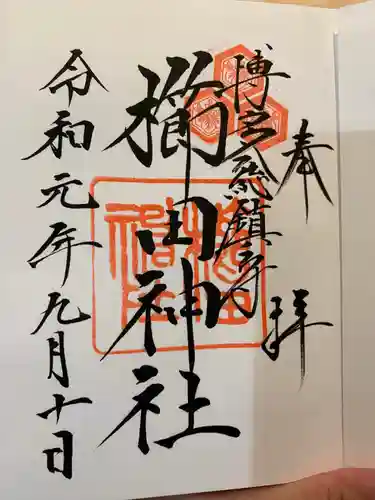 奉拝
博多総鎮守
櫛田神社
令和元年九月十日